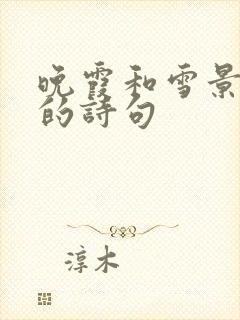 晚霞和雪景
的詩句
淳木